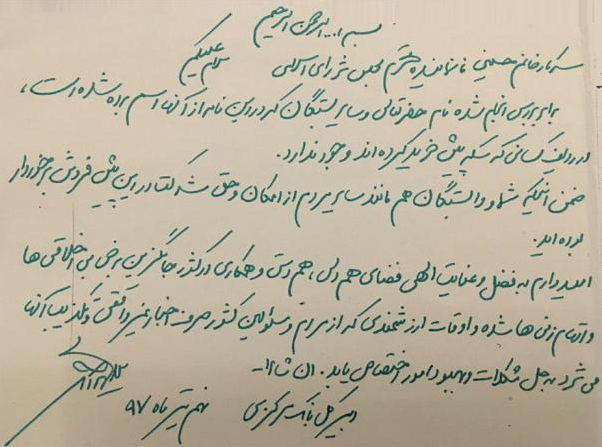 بسم ا... الرحمن الرحیم
سرکار خانم حسینی نماینده محترم مجلس شورای اسلامی
سلام علیکم
برابر بررسی انجام شده نام حضرتعالی و سایر بستگان که در این نامه از آنها اسم برده شده است،
در ردیف کسانی که سکه پیش خرید کرده اند وجود ندارد.
ضمن اینکه شما و وابستگان هم مانند سایر مردم از امکان و حق شرکت در این پیش فروش برخوردار
بوده اید.
امیدوارم به فضل و عنایت الهی فضای هم دلی، هم دستی و همکاری در کشور جایگزین برخی بی اخلاقی ها
و اتهام زنی ها شده و اوقات ارزشمندی که از مردم و مسئولین کشور صرف اخبار غیر واقعی و تکذیب آنها
می شود به حل مشکلات و بهبود امور اختصاص یابد. ان شاءا...
دبیر کل بانک مرکزی
نهم تیر ماه ۹۷